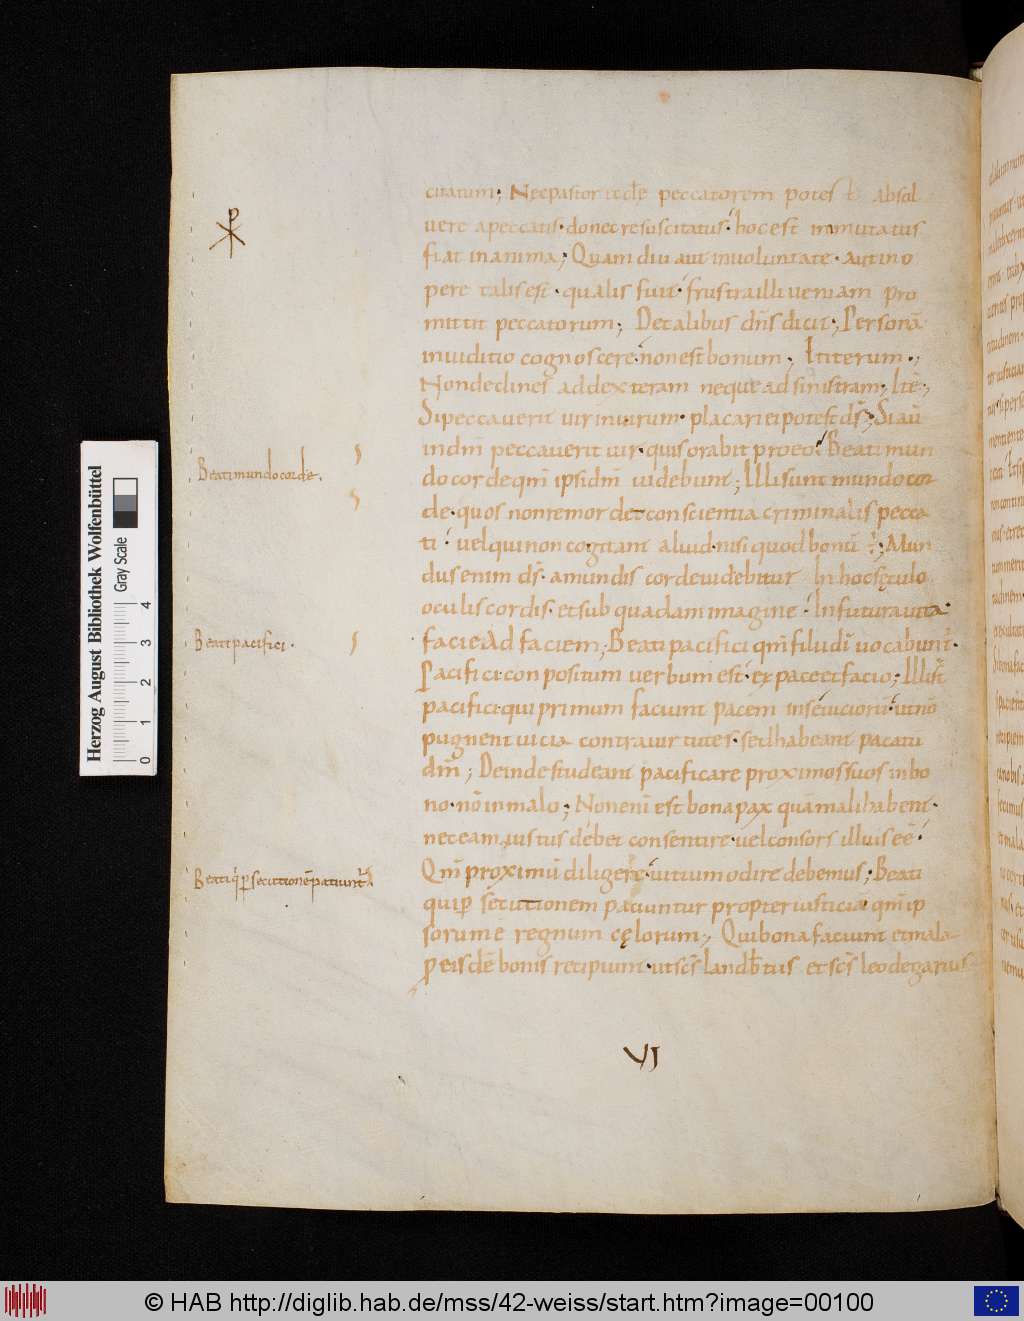 citatum; Nec pastor eccle peccatorem potest absol
vere a peccatis· donec resuscitatus· hoc est inmutatus
fiat in anima; Quam diu aut in voluntate· aut in o
pere talis est· qualis fuit· frustra illi veniam pro
mittit peccatorum; De talibus dns dicit; Personā
in iuditio cognoscere· non est bonum; Et iterum·;
Non declines ad dexteram neque ad sinistram; Itē;
Si peccaverit vir in virum· placari ei potest ds; Si aū
in dnm peccaverit vir· quis orabit pro eo? Beati mun
do corde qm ipsi dm videbunt; Illi sunt mundo cor
de· quos non remordet conscientia criminalis pecca
ti· vel qui non cogitant aliud nisi quod bonū ÷; Mun
dus enim ds· a mundis corde videbitur In hoc sęculo
oculis cordis· et sub quadam imagine· In futura vita·
facie Ad faciem; Beati pacifici qm filii di vocabunt·
Pacifici· conpositum verbum est· ex pace et facio; Illi st
pacifici· qui primum faciunt pacem in se· ut nō
pugnent vicia contra virtutes· sed habeant pacatū
dm; Deinde studeant pacificare proximos suos in bo
no· nō in malo; Non enī est bona pax quā mali habent·
nec eam iustus debet consentire· vel consors illius eē·
Qm proximū diligere· vitium odire debemus; Beati
qui psecutionem paciuntur propter iusticia· qm ip
sorum ē regnum cęlorum; Qui bona faciunt et mala
p eisdē bonis recipiunt· ut scs landbtus et scs leodegarius
Beati mundo corde.
Beati pacifici·
Beati q psecutionē patiunt
VI
Herzog August Bibliothek Wolfenbüttel
Gray Scale
0 1 2 3 4
© HAB http://diglib.hab.de/mss/42-weiss/start.htm?image=00100